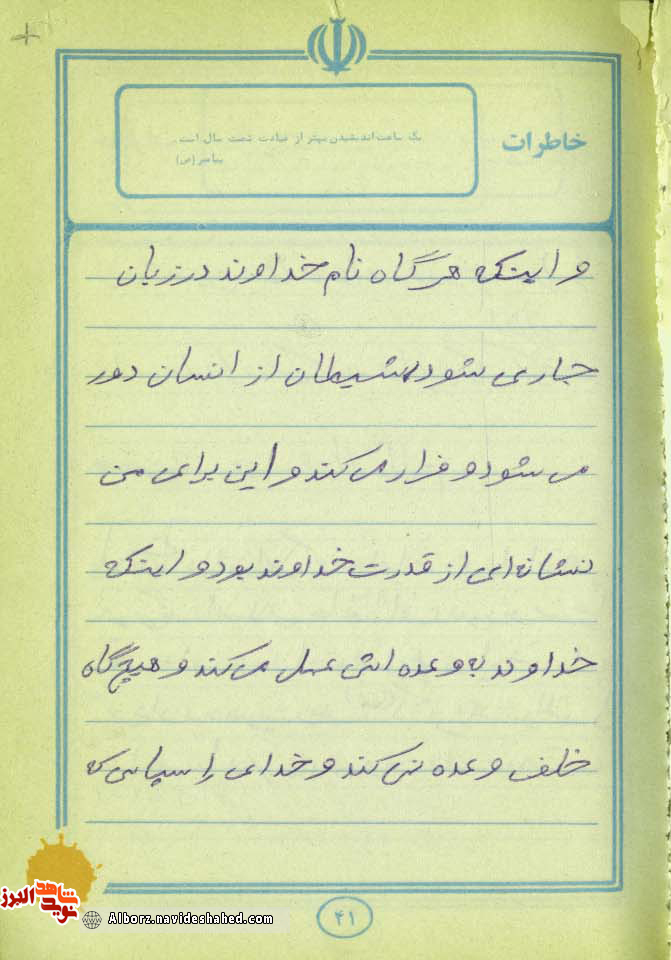 خاطرات
یک ساعت اندیشیدن بهتر از عبادت شصت سال است.
پیامبر (ص)
و اینکه هر گاه نام خداوند در زبان
جاری شود شیطان از انسان دور
می شود و فرار می کند و این برای من
نشانه ای از قدرت خداوند بود و اینکه
خداوند به وعده اش عمل می کند و هیچ گاه
خلف وعده نمی کند و خدای را سپاس که
۴۱
شاهد
نوید
البرز
Alborz.navideshahed.com